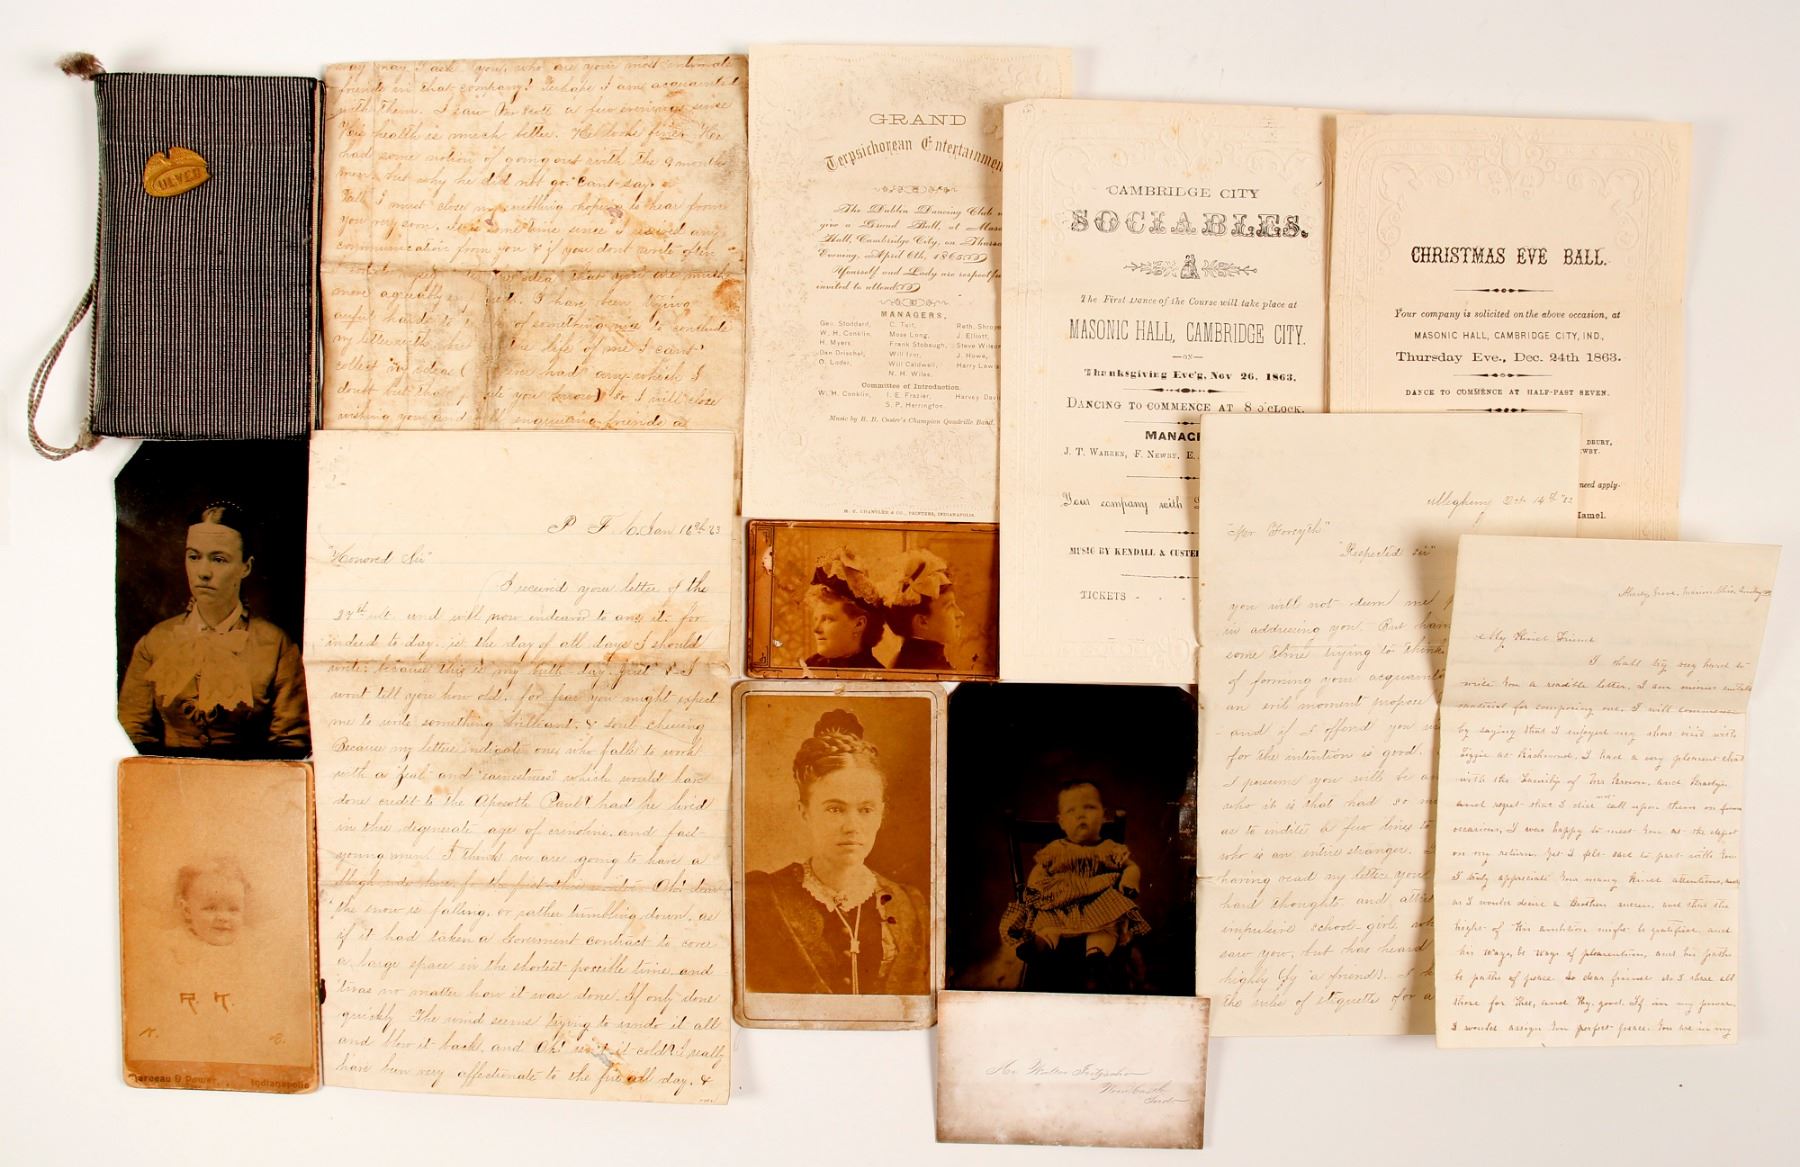 CULVER
may may I ask you, who are your most intimate
friends in that company? Perhaps I am acquainted
with them. I saw a few evenings since
His health is much better. He looks fine. He
had some notion of going out with the 9 months
men but why he did not go. Cant say.
Well I must close my hoping to hear from
you very soon. It is some time since I any
communication from you & if you dont write often
idea that you are much
more I have been trying
awful hard to of something nice to conclude
my letter with life of me I cant
collect an idea ( had any which I
doubt but that you know) so I will close
wishing you and enquiring friends a
P F Jan 16th 63
"Honored Sir"
I received your letter of the
ult. and will now endeavor to ans it. for
indeed to day, is the day of all days I should
write: because this is my birth day. first & I
wont tell you how old. for fear you might expect
me to write something brilliant. & soul cheering
Because my letters indicate one, who fall to work
with a zeal and "earnestness" which would have
done credit to the Apostle Paul had he lived
in this degenerate age of crinoline and fast-
young men. I think we are going to have a
for the first this winter. Oh! dear
the snow is falling, or rather tumbling down, as
if it had taken a Goverment contract to cover
a large space in the shortest possible time. and
'twas no matter how it was done. If only done
quickly. The wind seems trying to undo it all
and blow it back, and Oh! isn't it cold? I really
have been very affectionate to the fire all day. &
GRAND
Terpsichorean Entertainmen
The Dublin Dancing Club
give a Grand Ball, at Maso
Hall, Cambridge City, on Thurs
Evening, April 6th, 1865
Yourself and Lady are respectfu
invited to attend.
MANAGERS,
Geo. Stoddard, C. Tait, Reth. Shroye
W. H. Conklin, Mose Long, J. Elliott,
H. Myers Frank Stobaugh, Steve Wilso
Dan Drischel, Will Izor, J. Howe,
O. Loder, Will Caldwell, Harry Law
N. H. Wiles.
Committee of Introduction.
W. H. Conklin, I. E. Frazier, Harvey Davi
S. P. Herrington.
Music by H. D. Custer's Champion Quadrille Band.
H. C. CHANDLER & CO., PRINTERS, INDIANAPOLIS.
CAMBRIDGE CITY
SOCIABLES.
The First Dance of the Course will take place at
MASONIC HALL, CAMBRIDGE CITY.
—ON—
Thanksgiving Eve'g, Nov 26. 1863.
DANCING TO COMMENCE AT 8 O'CLOCK.
MANAG
J. T. WARREN, F. NEWBY, E.
Your company with
MUSIC BY KENDALL & CUSTE
TICKETS - - -
CHRISTMAS EVE BALL.
Your company is solicited on the above occasion, at
MASONIC HALL, CAMBRIDGE CITY, IND.,
Thursday Eve., Dec. 24th 1863.
DANCE TO COMMENCE AT HALF-PAST SEVEN.
DBURY,
WBY.
need apply.
Hamel.
Allegheny Oct. 14th '62
"Mr. Forsyth"
"Respected Sir"
you will not deem me
in addressing you. But havin
some time trying to think
of forming your acquaint
an evil moment propose
and if I offend you
for the intention is good.
I presume you will be
who it is that had so
as to indite a few lines to
who is an entire stranger.
having read my letter your
hard thoughts and
impulsive school-girl, who
saw you, but has heard
highly (by a friend).
the rules of etiquette for a
My Kind Friend
I shall try very hard to
write you a readible letter. I am minus suitable
material for composing one. I will commence
by saying that I enjoyed my short visit with
Lizzie at Richmond. I had a very pleasant chat
with the family of Mr Brown, and
and regret that I did not call upon them on former
occasions. I was happy to meet you at the depot
on my return. Yet I felt sad to part with you
I truly appreciate your many kind attentions, and
as I would desire a Brothers success, and that the
height of his ambition might be gratified, and
his ways be ways of pleasantness, and his paths
be paths of peace. So dear friend do I desire all
these for thee, and thy good. If in my power
I would assign you perfect peace. You are in my
R. K.
Marceau & Power, Indianapolis
Mr Walter
Ind